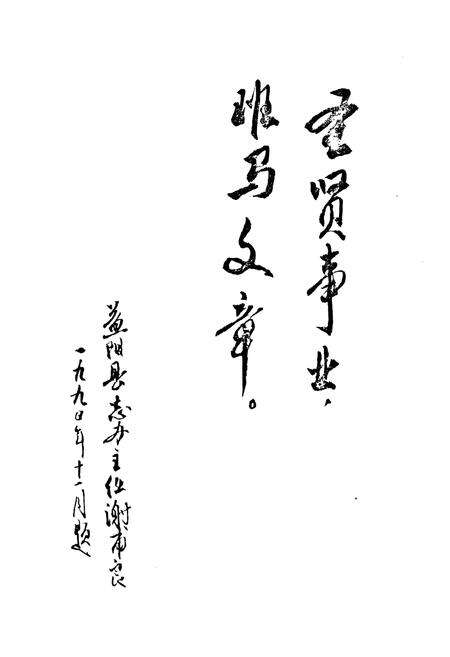 圣贤事业，
班马文章。
益阳县志办主任谢甫良
一九九〇年十一月题